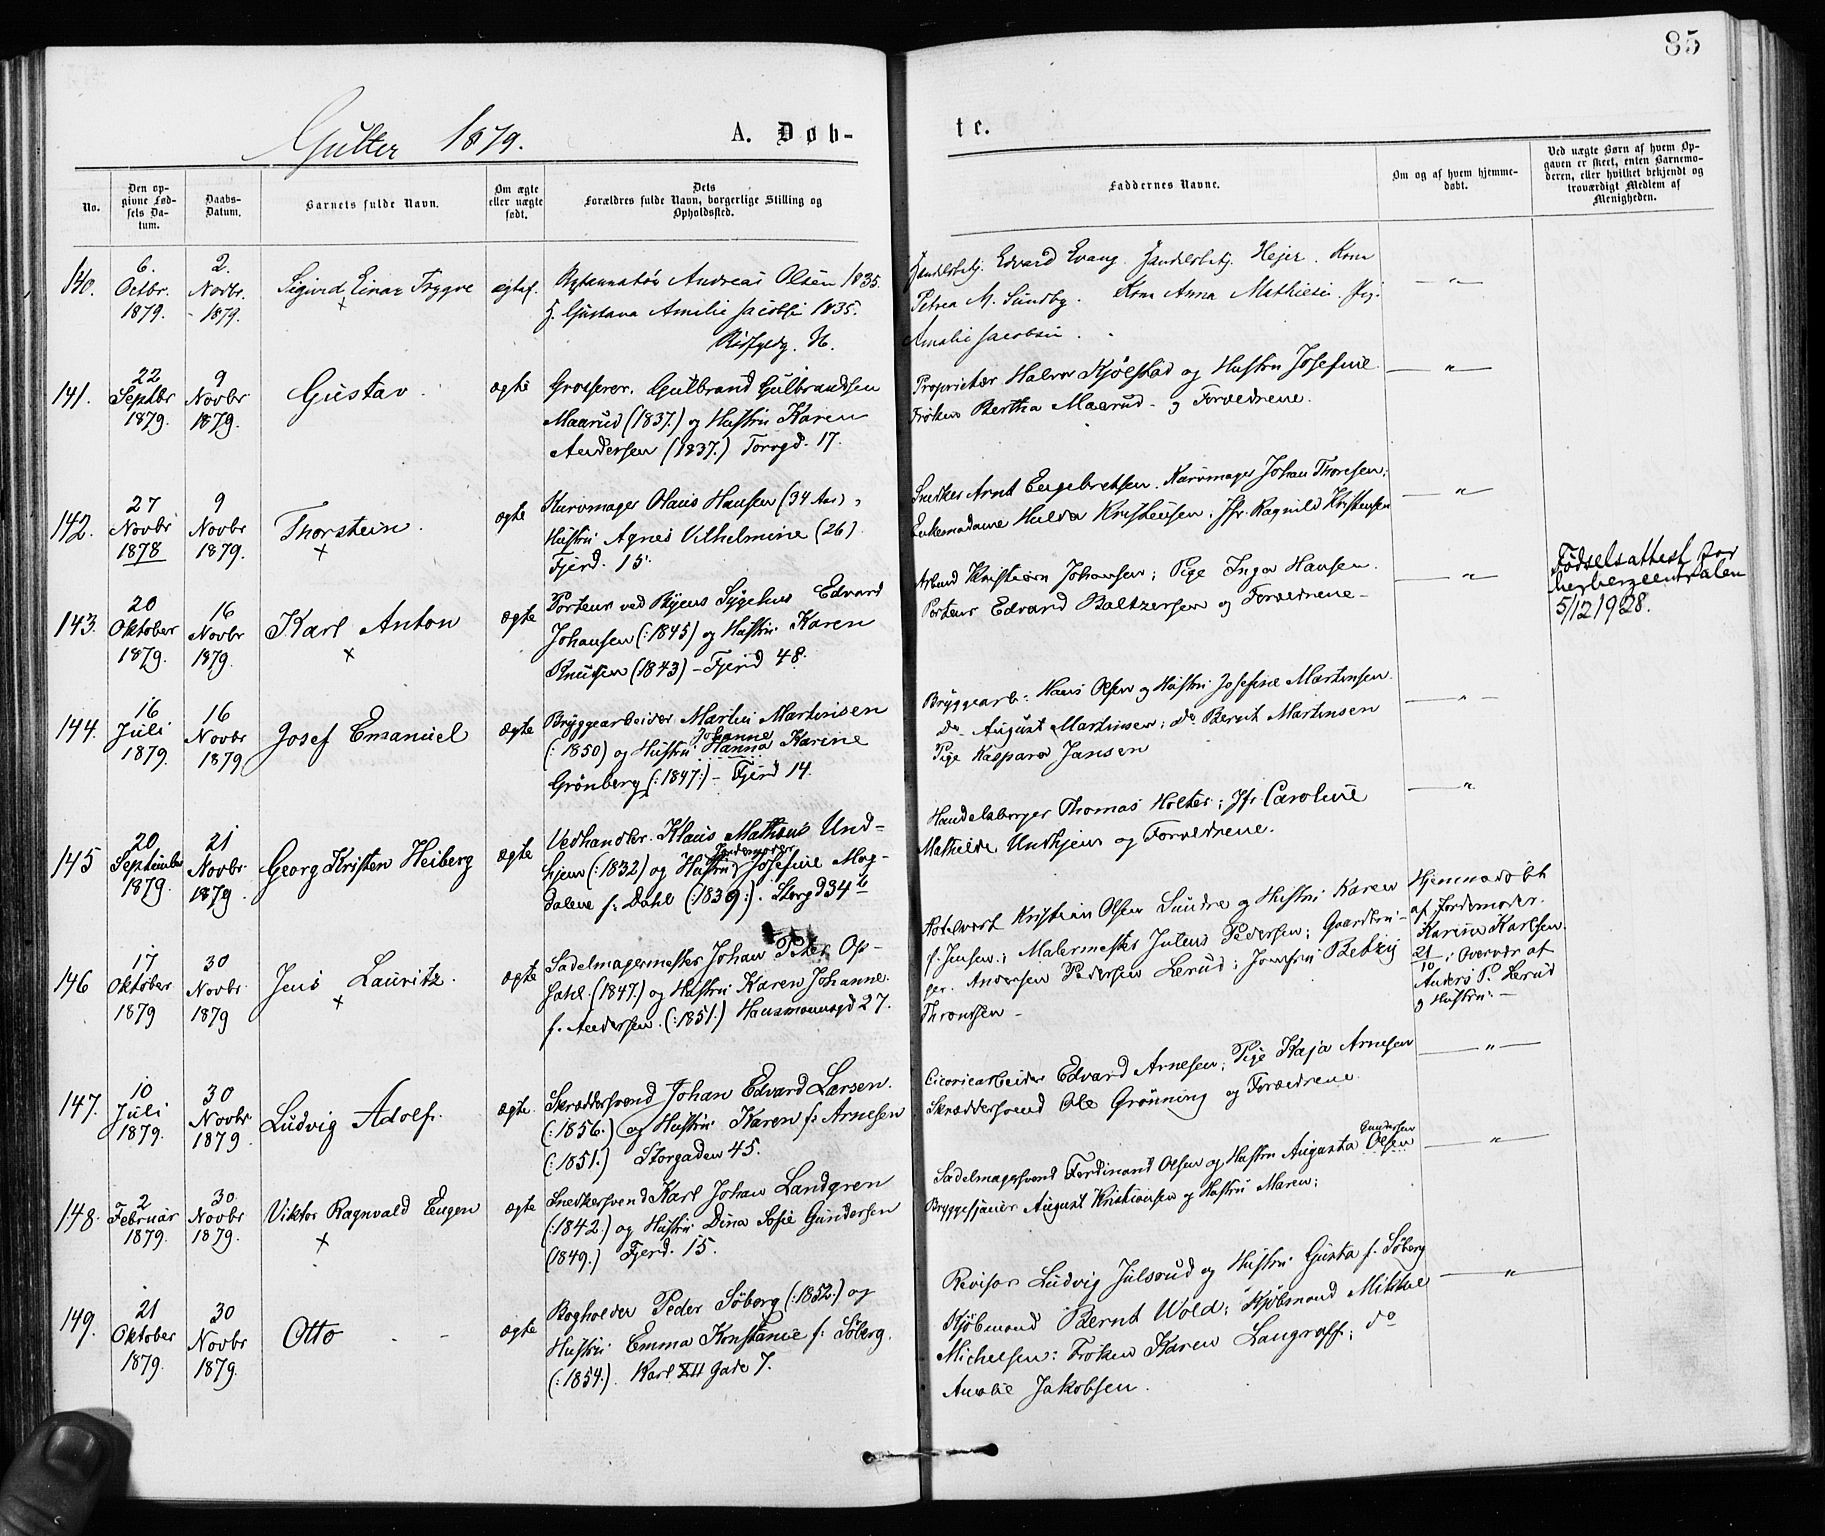 85
Gutter 1879.
A. Døb-
te.
No.
Den op-
givne Fød-
sels Da-
tum.
Daabs-
Datum.
Barnets fulde Navn.
Om ægte
eller uægte
født.
Dets
Forældres fulde Navn, borgerlige Stilling og
Opholdssted.
Faddernes Navne.
Om og af hvem hjemme-
døbt.
Ved uægte Børn af hvem Op-
gaven er skeet, enten Barnemo-
deren, eller hvilket bekjendt og
troværdigt Medlem af
Menigheden.
140.
6.
Octbr.
1879.
2.
Novbr.
- 1879.
Sigurd Einar Trygve
×
ægtef.
Andreas Olsen 1835.
H. Gustava Amilie Jacobsen 1835.
Handelsbetj. Edvard Evang. Handelsbetj. Hejer. Kone
Petrea M. Sundby. Kone Anna Mathiesen. Pig.
Amalie Jacobsen.
— " —
141.
22
Septbr
1879.
9
Novbr
1879.
Gustav
ægte
Grosserer. Gulbrand Gulbrandsen
Maarud (1837.) og Hustru Karen
Andersen (1837.) Torvgd. 17.
Proprietær Halvor Kjølstad og Hustru Josefine
Frøken Bertha Maarud - og Forældrene.
— " —
142.
27
Novbr
1878
9
Novbr
1879.
Thorstein.
×
ægte
Kurvmager Olaus Hansen (34 Aar) ,
Hustru Agnes Vilhelmine (26)
Fjerd. 15.
Snedker Arnt Engebretsen. Kurvmager Johan Thoresen;
Enkemadame Hulda Kristensen. Jfr. Ragnild Kristensen
— " —
143.
20
Oktober
1879.
16
Novbr
1879.
Karl Anton
×
ægte
Porteur ved Byens Sygehus Edvard
Johansen (:1845) og Hustru Karen
Knutsen (1843) - Fjerd 48.
Arbmd Kristian Johansen; Pige Inga Hansen.
Porteur Edvard Baltzersen og Forældrene -
— " —
Fødselsattest for
herbergcentralen
5/12 1928.
144.
16
Juli
1879.
16
Novbr
1879
Josef Emanuel
ægte
Bryggearbeider Martin Martinsen
(:1850) og Hustru Johanne Hanna Karine
Grønberg (:1847:) - Fjerd 14.
Bryggearb: Hans Olsen og Hustru Josefine Martinsen.
do August Martinsen; do Bernt Martinsen
Pige Kaspara Jansen
— " —
145
20
September
1879.
21
Novbr
1879.
Georg Kristen Heiberg
ægte
Vedhandler. Klaus Mathæus Und-
hjem (:1832) og Hustru Jordemoder Josefine Mag-
dalene f: Dahl (:1839:). Storgd 34 b
Handelsborger Thomas Holter; Jfr. Caroline
Mathilde Undhjem og Forældrene.
— " —
146
17
Oktober
1879
30
Novbr
1879
Jens Lauritz.
×
ægte
Sadelmagermester Johan Peter Op-
sahl. (1847.) og Hustru Karen Johanne
f. Andersen. (:1851.) Hausmannsgd 27.
Kristian Olsen Sundre og Hustru Karen
f. Jensen; Malermester Julius Pedersen; Gaardbru-
ger. Andersen Pedersen Lerud; Jomfru Betzy
Throntsen -
Hjemmedøbt
af Jordemoder.
Karine Karlsen.
21/10; Overvær af
Anders P. Lerud
og Hustru. -
147.
10
Juli
1879.
30
Novbr
1879.
Ludvig Adolf.
ægte.
Skræddersvend Johan Edvard Larsen.
(:1856.) og Hustru Karen f: Arnesen
(:1851.) Storgaden 45.
Cicoriearbeider Edvard Arnesen; Pige Kaja Arnesen
Skræddersvend Ole Grønning og Forældrene
— " —
148.
2
Februar
1879.
30
Novbr
1879.
Viktor Ragnvald Eugen
×
ægte
Snedkersvend Karl Johan Landgren
(:1842.) og Hustru Dina Sofie Gundersen
(1849.) Fjerd. 15.
Sadelmagersvend Ferdinand Olsen og Hustru Augusta Gundersen Olsen
Bryggesjauer August Kristiansen og Hustru Maren;
— " —
149.
21
Oktober
1879.
30
Novbr
1879.
Otto
ægte
Bogholder Peder Söberg (:1852.) og
Hustru Emma Konstanse f: Søberg.
(:1854.) Karl XII Gade 7.
Revisor Ludvig Julsrud og Hustru Gusta f. Söberg
Kjøbmand Bernt Wold; Kjøbmand Mikkel
Michelsen: Frøken Karen Langraff; do
Amalie Jakobsen.
— " —